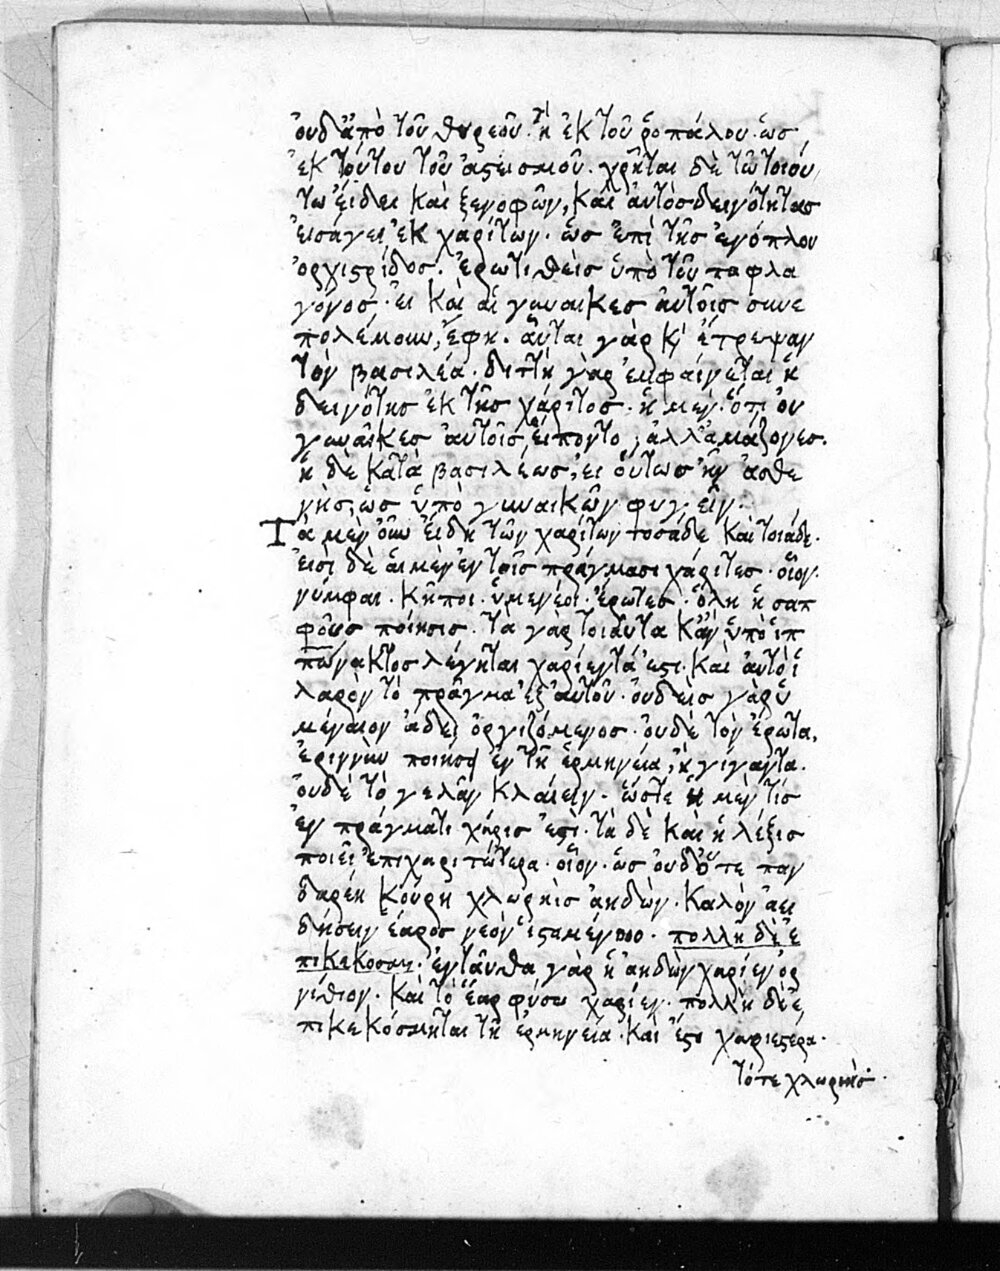 ὀυδ' ἀπὸ τοῦ θυρεοῦ. ἢ ἐκ τοῦ ῥοπάλου. ὡς
ἐκ τούτου τοῦ ἀστεισμοῦ. χρῆται δὲ τῶ τοιού
τω ἔιδει καὶ ξενοφῶν, καὶ ἀυτὸς δεινότητας
ἐισάγει ἐκ χαρίτων. ὡς ἐπὶ τῆς ἐνόπλου
ὀρχιστρίδος. ἐρωτιθὲις ὑπὸ τοῦ παφλα
γόνος, ἐι καὶ αἱ γυναικες ἀυτοῖς συνε
πολέμουν, ἔφη. ἇυται γὰρ κ' ἔτρεψαν
τὸν βασιλέα. διττὴ γὰρ ἐμφάινεται ἡ
δεινότης ἐκ τῆς χάριτος. ἡ μὲν, ὅτι ὀυ
γυνᾶικες ἀυτοῖς ἕιποντο, ἀλλ' ἀμάζονες.
ἡ δὲ κατὰ βασιλέως, ει ὅυτως ἦν ἀσθε
νὴς, ὡς ὑπὸ γυναικῶν φυγεῖν.
Τὰ μὲν ὀυν ἔιδη τῶν χαρίτων τοσάδε καὶ τοιάδε.
ἐισὶ δὲ ἁι μὲν ἐν τοῖς πράγμασι χάριτες. οἷον.
νύμφαι. κῆποι. ὑμεναιοι. ἔρωτες. ὅλη ἡ σαπ
φοῦς ποίησις. τα γὰρ τοιαυτα κἂν ὑπὸ ἱπ
πώνακτος λέγηται χαρίεντά ἐστι. καὶ ἀυτὸ ἱ
λαρὸν τὸ πρᾶγμα ἐξ ἀυτοῦ. ὀυδεὶς γὰρ ὑ
μέναιον ἄδει ὀργιζόμενος. ὀυδὲ τὸν ἔρωτα,
ἐριννὺν ποιήσει ἐν τῆ ἑρμηνεία, ἢ γίγαντα.
ὀυδὲ τὸ γελᾶν κλαίειν. ὥστε ἡ μέν τίς
ἐν πράγματι χάρις ἐστὶ. τὰ δὲ καὶ ἡ λέξις
ποιεῖ ἐπιχαριτώτερα. οἷον. ὡς ὀυδ' ὅτε παν
δαρέη κούρη χλωρηὶς ἀηδὼν. καλὸν ἀει
δησιν ἔαρος νέον ἱσταμένοιο. πολλὴ δὲ ἐ
πικεκοσμ. ἐνταῦθα γὰρ ἡ ἀηδὼν χαρίεν ὀρ
νίθιον. καὶ τὸ ἔαρ φύσει χαρίεν. πολλὴ δὲ ἐ
πικεκόσμηται τῆ ἑρμηνεία. καὶ ἔστι χαριέστερα.
τό τε χλωρηὶς.